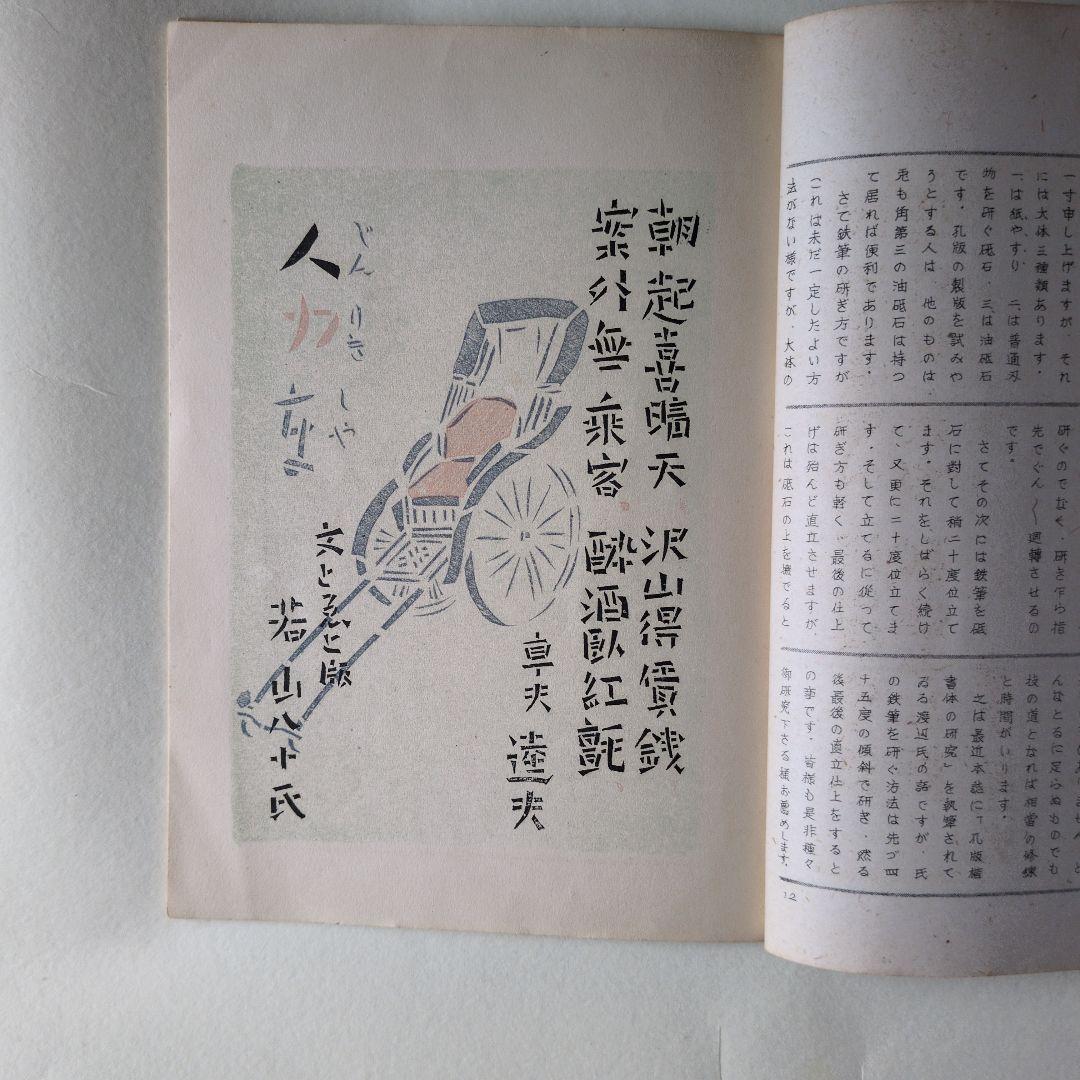 一寸申し上げますが、それ
には大体三種類あります。
一は紙やすり 二は普通刃
物を研ぐ砥石、三は油砥石
です。孔版の製版を試みや
うとする人は、他のものは
兎も角第三の油砥石は持つ
て居れば便利であります。
さて鉄筆の研ぎ方ですが
これは未だ一定したよい方
法がない様ですが、大体の
研ぐのでなく、研き乍ら指
先でぐん〱廻轉させるの
です。
さてその次には鉄筆を砥
石に對して稍二十度位立て
ます。それを、しばらく続け
て、又更に二十度位立てま
す。そして立てるに従って
研ぎ方も軽く、最後の仕上
げは殆んど直立させますが、
これは砥石の上を撫でると
んなとるに足らぬものでも
技の道となれば相當の修練
と時間がいります。
之は最近本誌に「孔版楷
書体の研究」を執筆されて
ゐる渡辺氏の話ですが、氏
の鉄筆を研ぐ方法は先づ四
十五度の傾斜で研ぎ、然る
後最後の直立仕上をすると
の事です。皆様も是非種々
御研究下さる様お薦めします。
12
朝起喜晴天 沢山得賃銭
案外無乗客 酔酒臥紅氈
車夫 達夫
じんりきしや
人力車
文とゑと版
若山八十氏